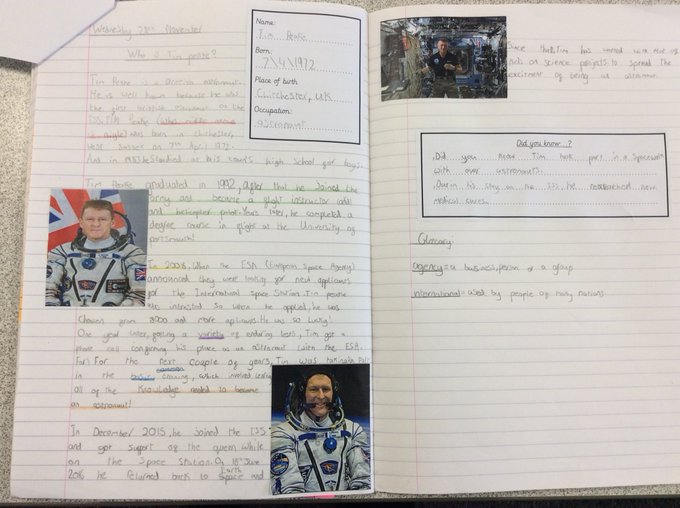 Wednesday 28th November
Who is Tim peake?
Tim Peake is a British astronaut.
He is well known because he was
the first british astronaut on the
ISS. Tim Peake
was born in chichester,
West Sussex on 7th April 1972.
high school for boys.
Tim Peake graduated in 1992, after that he joined the
army and became a flight instructor
and helicopter pilot. Years later, he completed a
degree course in flight at the University of
portsmouth!
In 2008, When the ESA (European Space Agency)
announced they were looking for new applicants
for the International Space Station. Tim peake
was intrested so when he applied, he was
Chosen from 8000 and more aplicants. He was so Lucky!
One year later, a variety of enduring tests, Tim got a
phone call confirming his place as an astronaut with the ESA.
For the next couple of years, Tim was
in the basic common training, which involved
all of the knowledge needed to become
an astronaut!
In December 2015, he Joined the ISS
and got support of the queen while
on the Space Station. On 18th June
2016 he returned back to Earth and
Name:
Tim Peake
Born:
7\4\1972
Place of birth
Chichester, UK
Occupation:
astronaut
Since then, Tim has worked with
on science projects to spread the
excitment of being an astronaut.
Did you know...?
Did you know Tim took part in a Spacewalk
with other astronauts.
During his stay on the ISS, he researched new
medical cures.
Glossary
agency = a business, person or a group
international = used by people of many nations